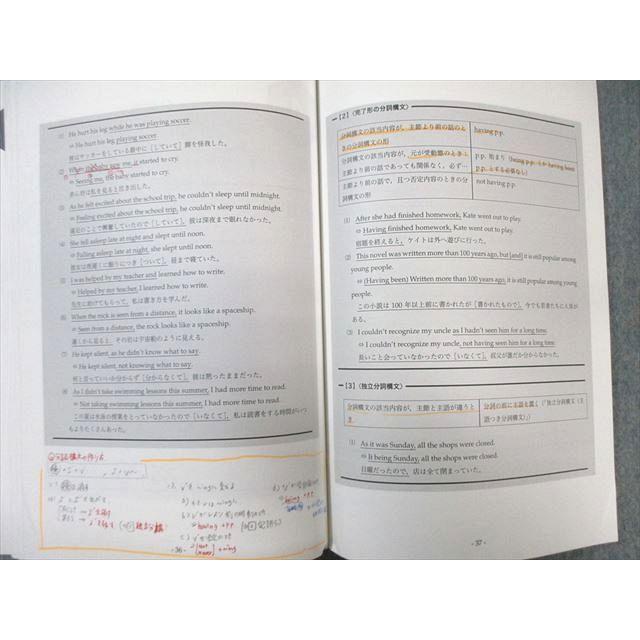 (1) He hurt his leg while he was playing soccer.
⇔ He hurt his leg playing soccer.
彼はサッカーをしている最中に［していて］脚を怪我した。
(2) When the baby saw me, it started to cry.
⇔ Seeing me, the baby started to cry.
赤ん坊は私を見ると泣き出した。
(3) As he felt excited about the school trip, he couldn't sleep until midnight.
⇔ Feeling excited about the school trip, he couldn't sleep until midnight.
遠足のことで興奮していたので［していて］, 彼は深夜まで眠れなかった。
(4) She fell asleep late at night and slept until noon.
⇔ Falling asleep late at night, she slept until noon.
彼女は夜遅くに眠りにつき［ついて］, 昼まで寝ていた。
(5) I was helped by my teacher and learned how to write.
⇔ Helped by my teacher, I learned how to write.
先生に助けてもらって, 私は書き方を学んだ。
(6) When the rock is seen from a distance, it looks like a spaceship.
⇔ Seen from a distance, the rock looks like a spaceship.
遠くから見ると, その岩は宇宙船のように見える。
(7) He kept silent, as he didn't know what to say.
⇔ He kept silent, not knowing what to say.
何と言っていいか分からず［分からなくて］, 彼は黙ったままだった。
(8) As I didn't take swimming lessons this summer, I had more time to read.
⇔ Not taking swimming lessons this summer, I had more time to read.
この夏は水泳の授業をとっていなかったので［いなくて］, 私は読書をする時間がいつ
もよりたくさんあった。
- 36 -
［2］〈完了形の分詞構文〉
分詞構文の該当内容が、主節より前の話のと having p.p.
きの分詞構文の形
分詞構文の該当内容が、元が受動態のとき： p.p. 始まり (being p.p. も having been
主節より前の話であっても関係なく、必ず… p.p. とする必要なし)
主節より前の話で、且つ否定内容のときの分 not having p.p.
詞構文の形
(1) After she had finished homework, Kate went out to play.
⇔ Having finished homework, Kate went out to play.
宿題を終えると, ケイトは外へ遊びに行った。
(2) This novel was written more than 100 years ago, but[and] it is still popular among
young people.
⇔ (Having been) Written more than 100 years ago, it is still popular among young
people.
この小説は 100 年以上前に書かれたが［書かれたもので］, 今でも若者たちに人気が
ある。
(3) I couldn't recognize my uncle as I hadn't seen him for a long time.
⇔ I couldn't recognize my uncle, not having seen him for a long time.
長いこと会っていなかったので［いなくて］, 叔父が誰だか分からなかった。
［3］〈独立分詞構文〉
分詞構文の該当内容が、主節と主語が違うと 分詞の前に主語を置く（「独立分詞構文（主
き 語つき分詞構文）」）
(1) As it was Sunday, all the shops were closed.
⇔ It being Sunday, all the shops were closed.
日曜だったので, 店は全て閉まっていた。
- 37 -